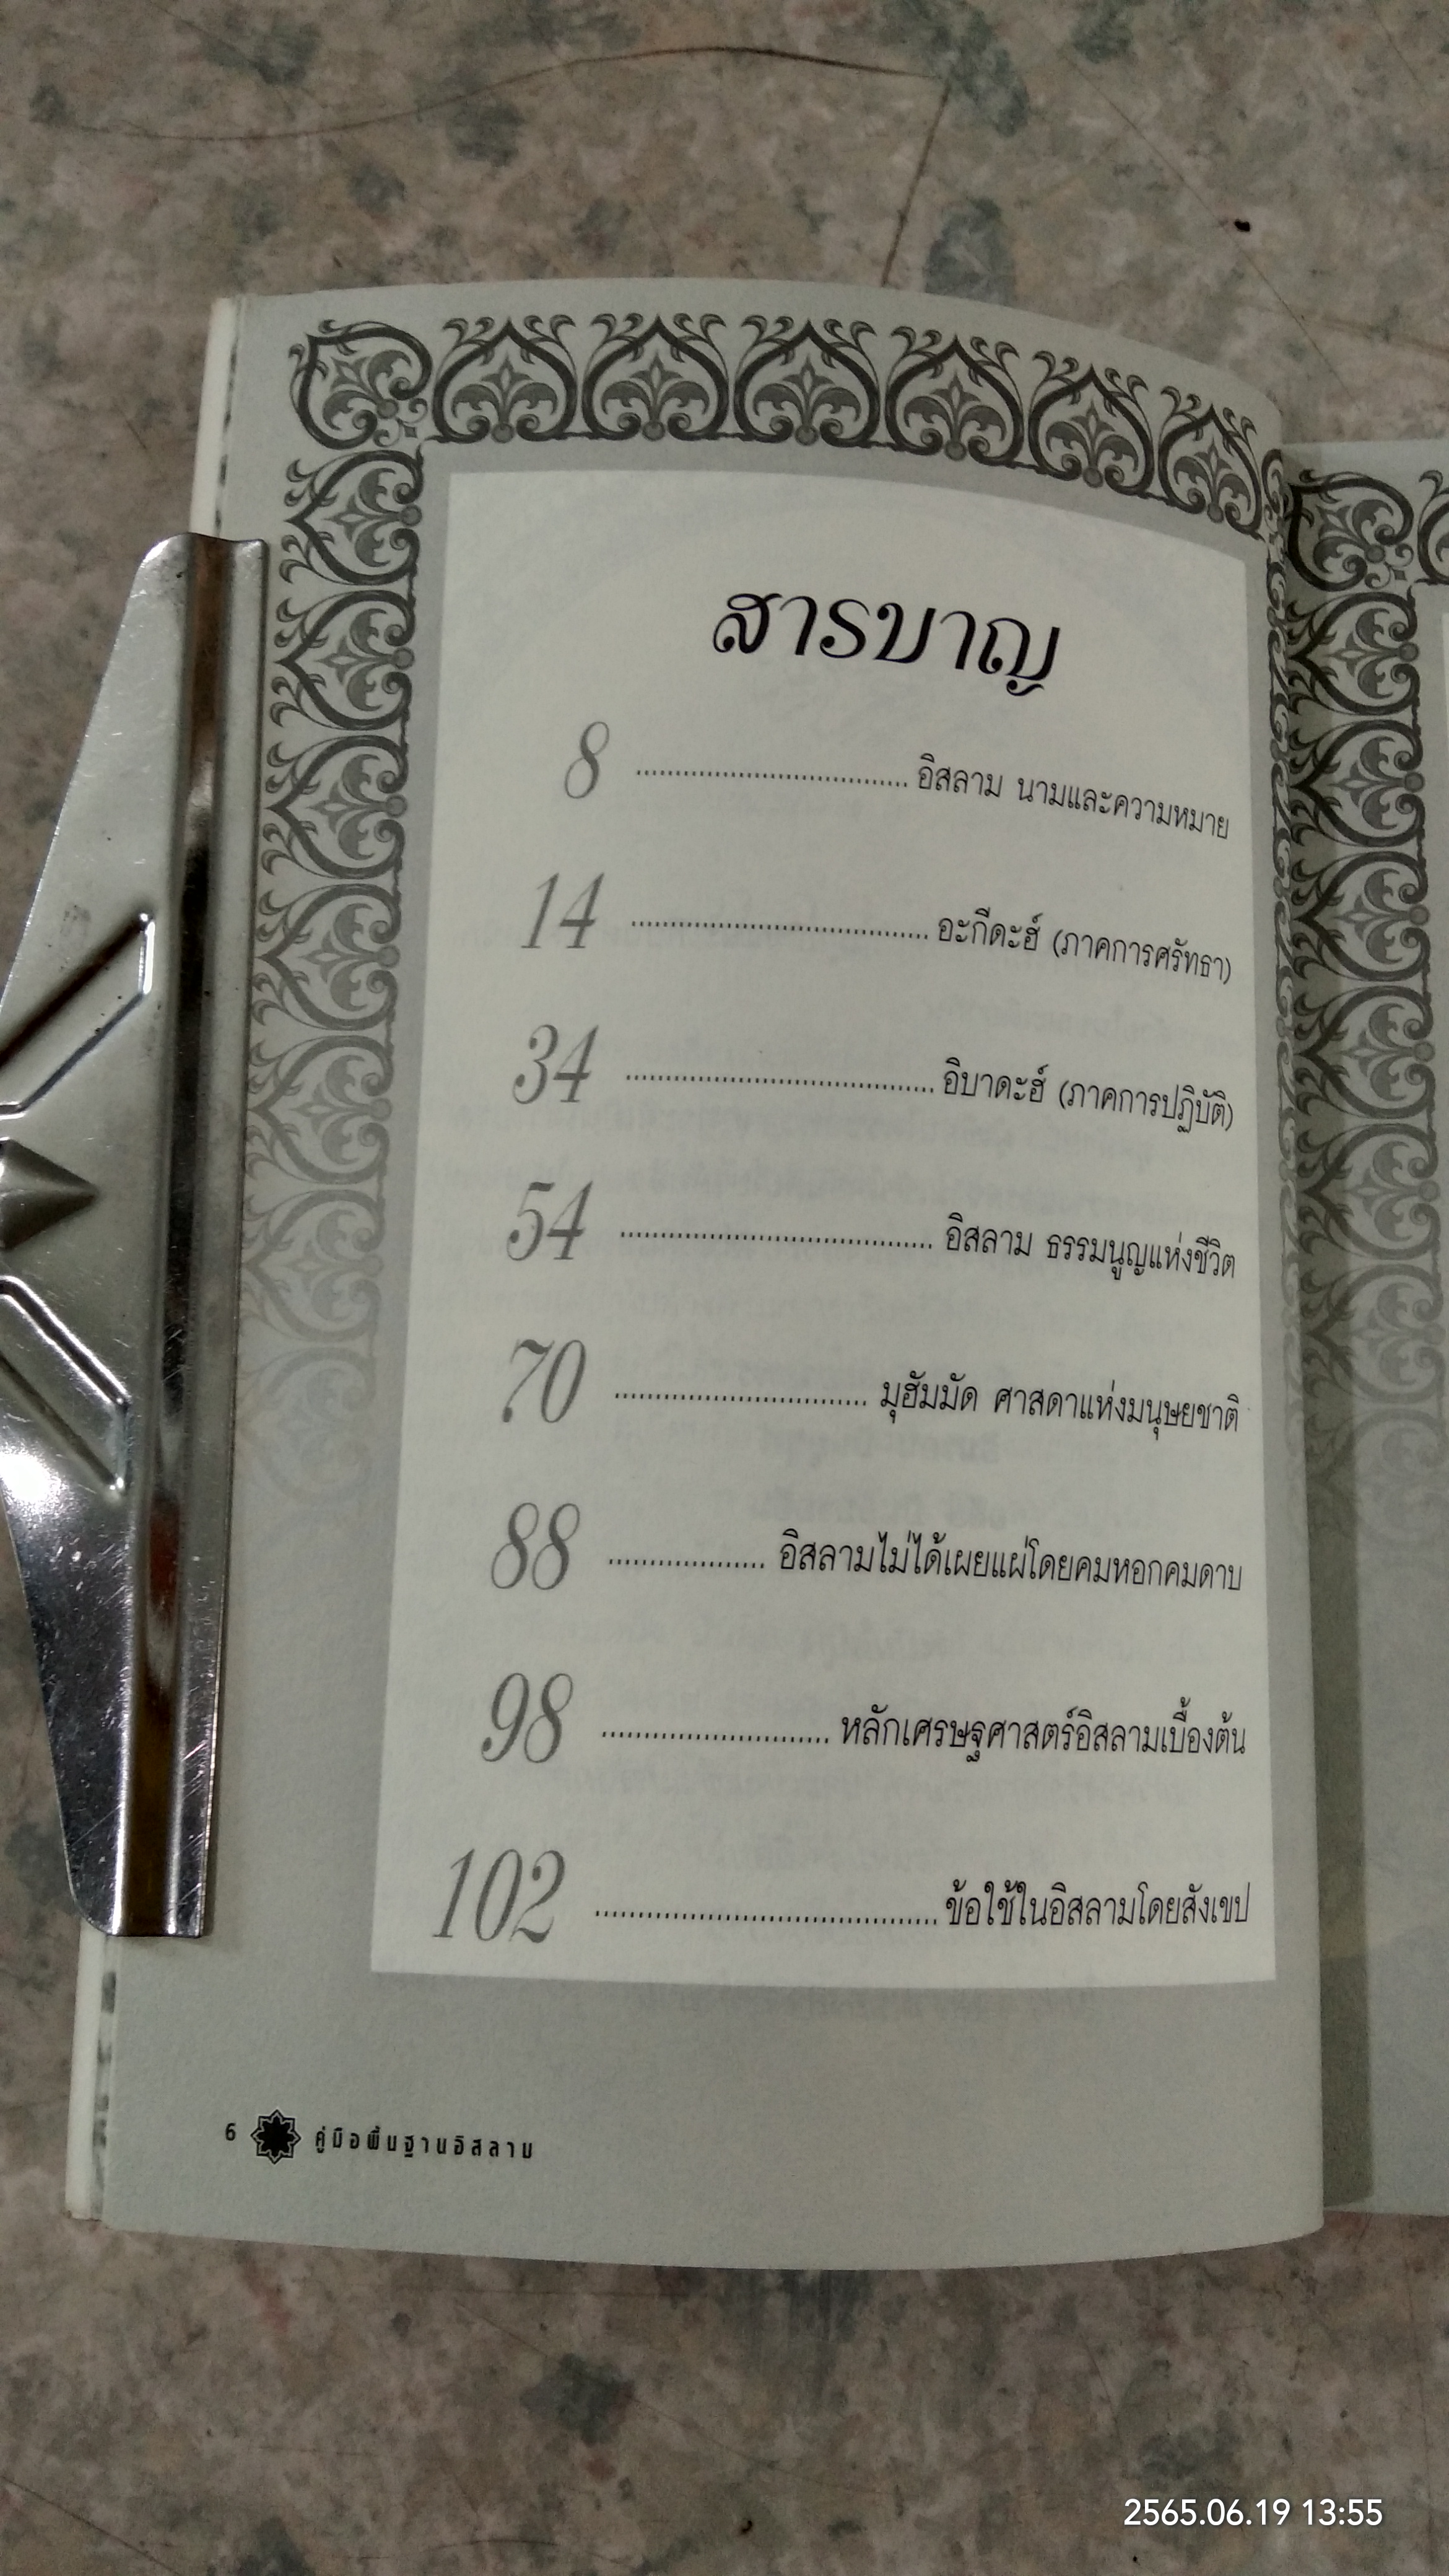 สารบาญ
8 .................................. อิสลาม นามและความหมาย
14 ..................................... อะกีดะฮ์ (ภาคการศรัทธา)
34 ...................................... อิบาดะฮ์ (ภาคการปฏิบัติ)
54 ....................................... อิสลาม ธรรมนูญแห่งชีวิต
70 ............................... มุฮัมมัด ศาสดาแห่งมนุษยชาติ
88 ................... อิสลามไม่ได้เผยแผ่โดยคมหอกคมดาบ
98 ........................... หลักเศรษฐศาสตร์อิสลามเบื้องต้น
102 ........................................ ข้อใช้ในอิสลามโดยสังเขป
6 คู่มือพื้นฐานอิสลาม
2565.06.19 13:55